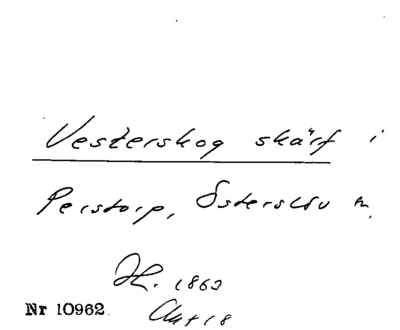 Vesterskog skärf i
Perstorp, Östersläv m.
H. 1862
Akt 18
Nr 10962.